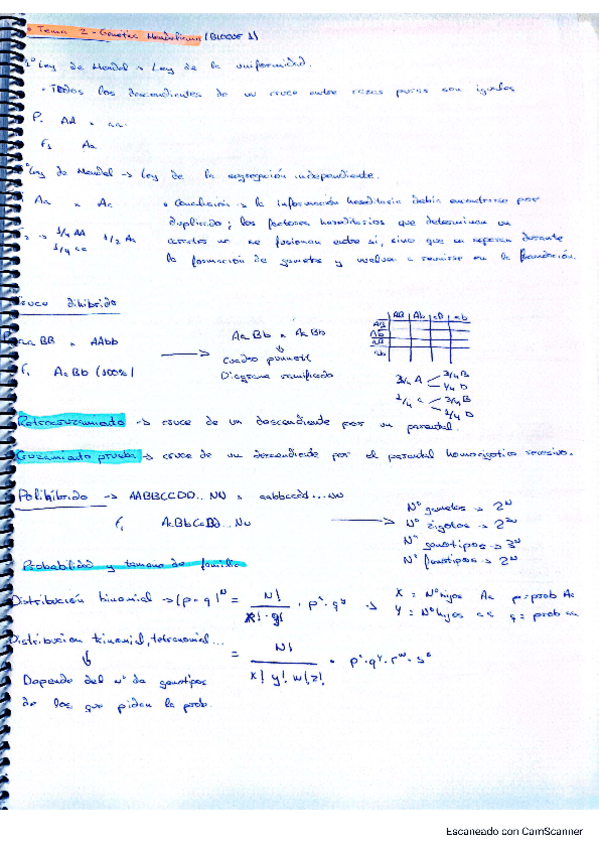 • Tema 2 - Genética Mendeliana (BLOQUE 1)
1ª Ley de Mendel → Ley de la uniformidad.
• Todos los descendientes de un cruce entre razas puras son iguales
P. AA x aa.
F1 Aa
2ª Ley de Mendel → Ley de la segregación independiente.
Aa x Aa
F2 → 1/4 AA 1/2 Aa
1/4 aa
• Conclusión → la información hereditaria debía encontrarse por
duplicado; los factores hereditarios que determinan un
carácter no se fusionan entre sí, sino que se separan durante
la formación de gametos y vuelven a reunirse en la fecundación.
Cruce dihíbrido
BB x AAbb
F1 AaBb (100%)
AaBb x AaBb
Cuadro punnett
Diagrama ramificado
AB Ab aB ab
AB
Ab
aB
ab
3/4 A 3/4 B
1/4 b
1/4 a 3/4 B
1/4 b
Retrocruzamiento → cruce de un descendiente por un parental.
Cruzamiento prueba → cruce de un descendiente por el parental homocigótico recesivo.
Polihíbrido → AABBCCDD...NN x aabbccdd...nn
F1 AaBbCcDd...Nn
Nº gametos → 2^N
Nº zigotos → 2^2N
Nº genotipos → 3^N
Nº fenotipos → 2^N
Probabilidad y tamaño de familia
Distribución binomial → (p+q)^N = N! / x! · y! · p^x · q^y →
X = Nº hijos Aa p = prob Aa
Y = Nº hijos aa q = prob aa
Distribucion trinomial, tetranomial...
= N! / x! y! w! z! · p^x · q^y · r^w · s^z
Depende del nº de genotipos
de los que pidan la prob.
Escaneado con CamScanner